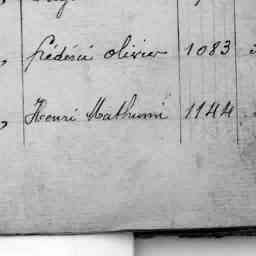 , frédéric olivier 1083
, Henri Mathurin 1144